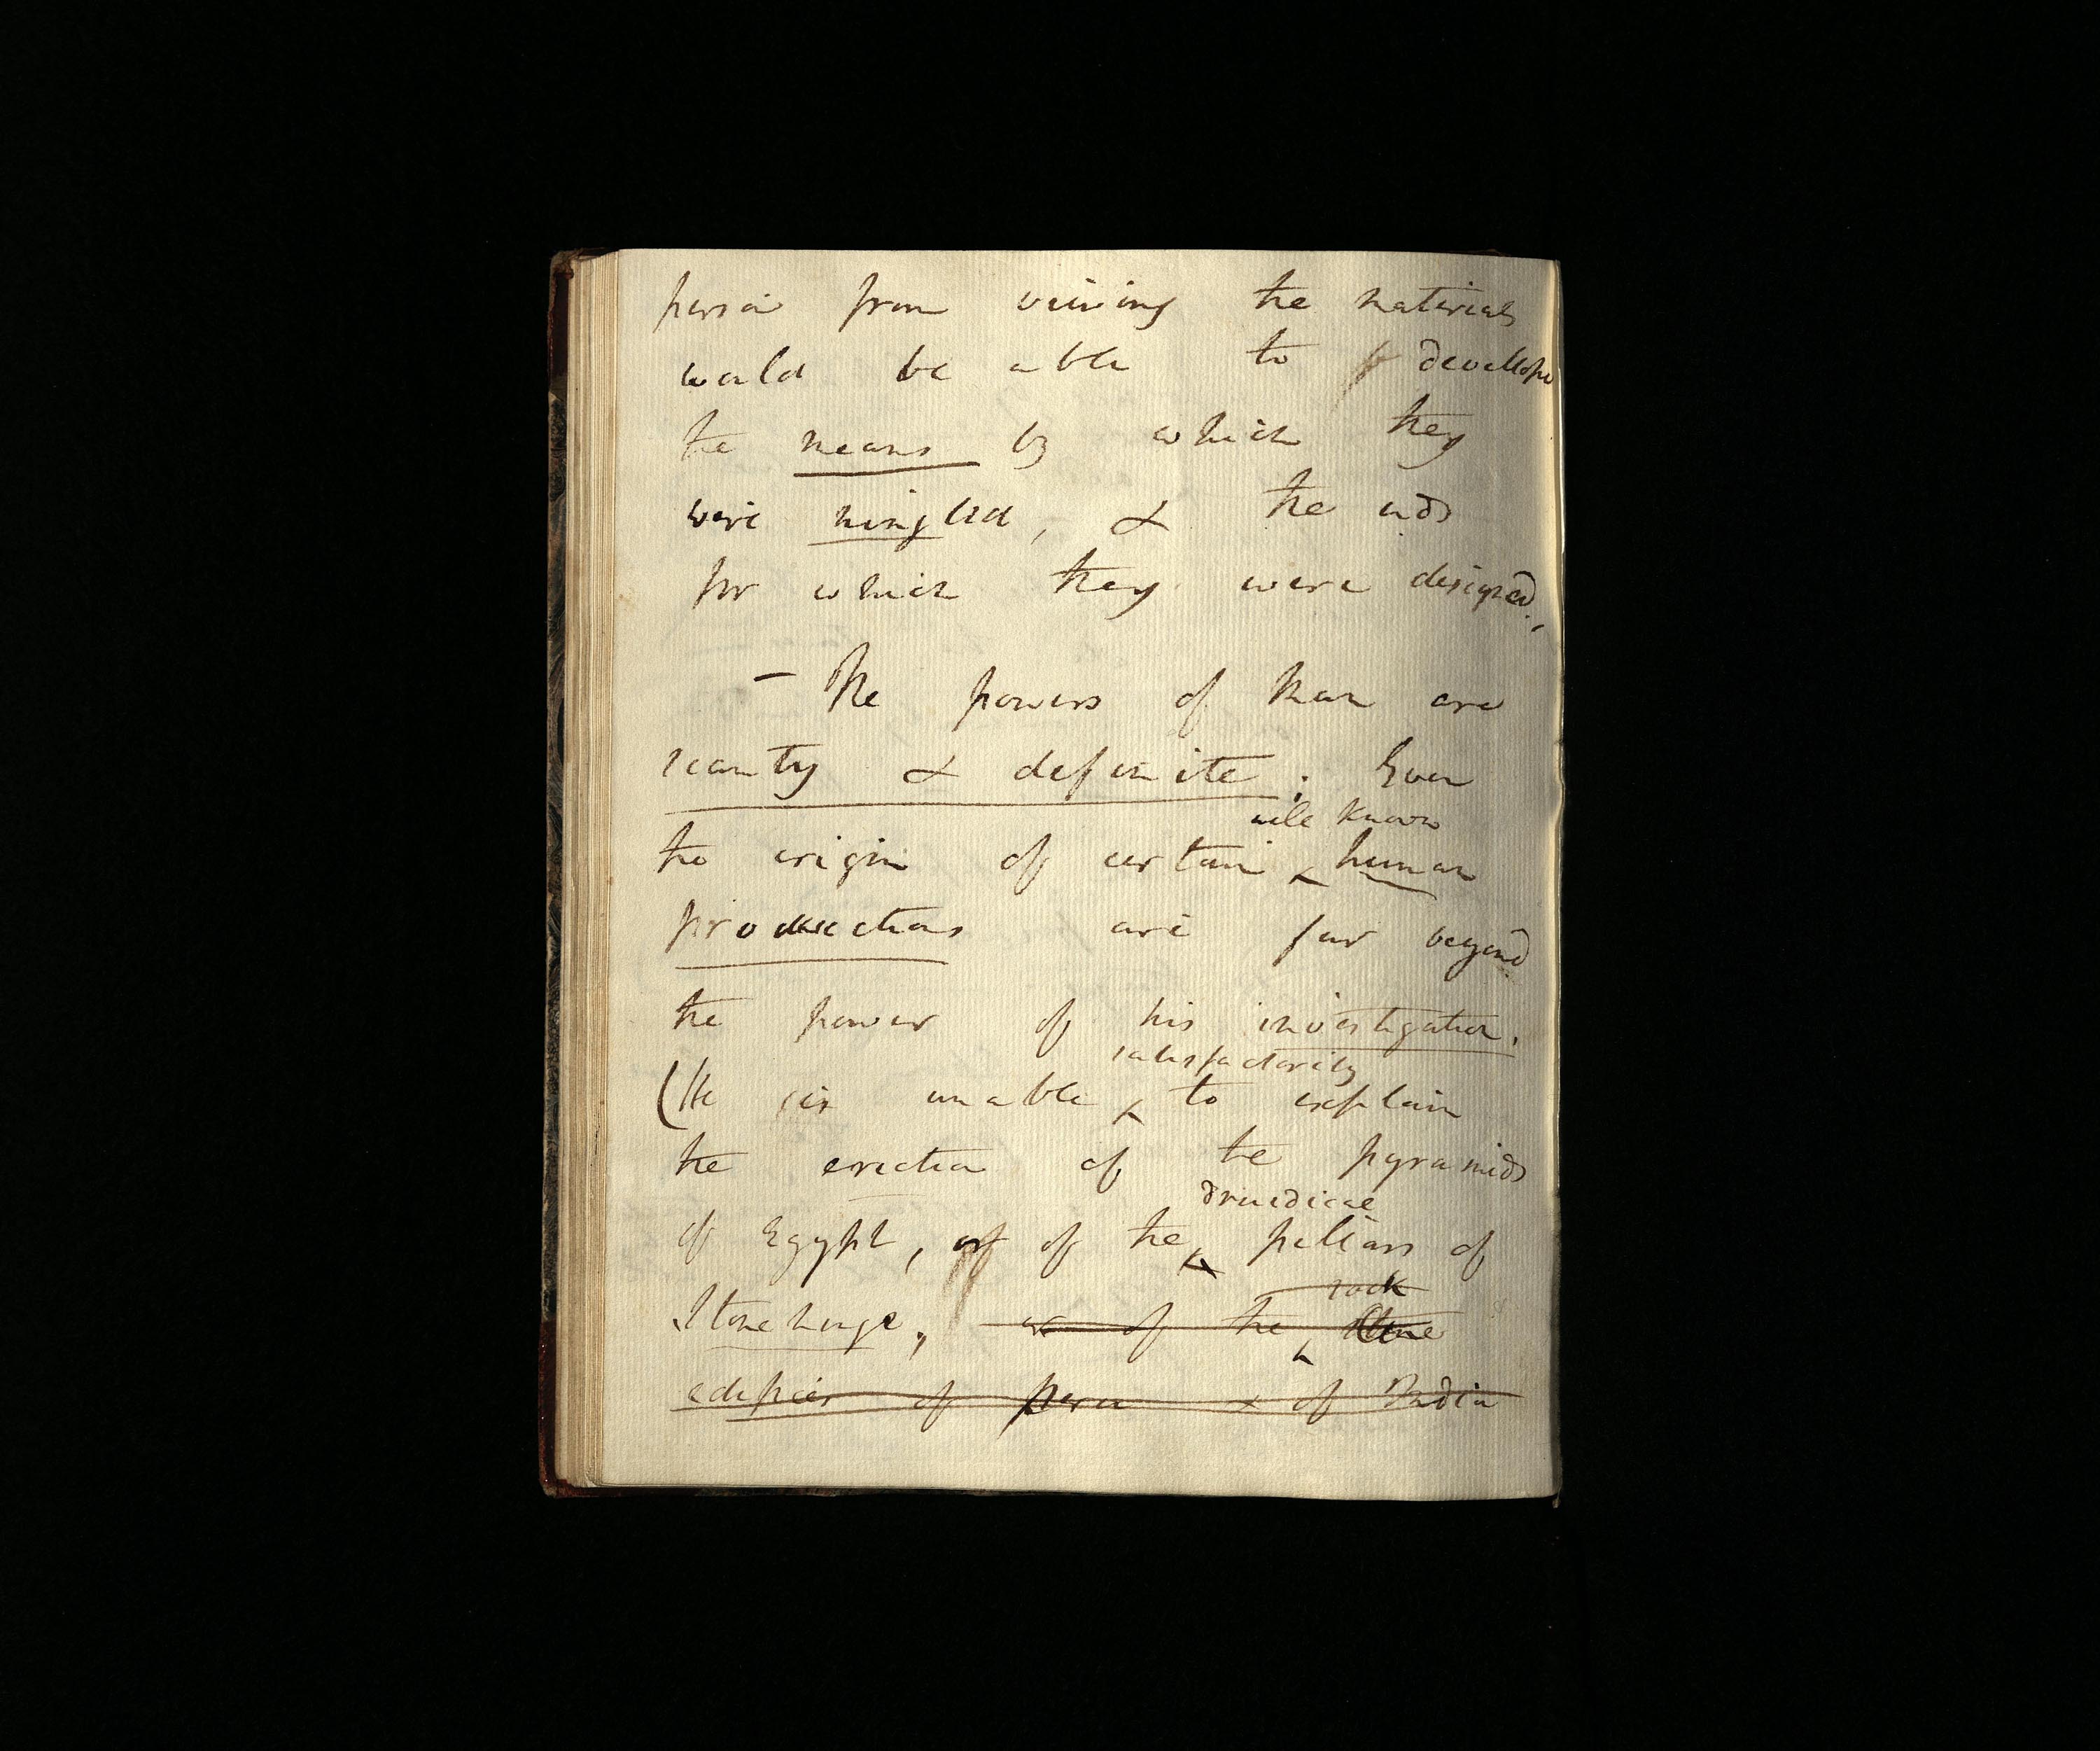 person from viewing the materials
would be able to develope
the means by which they
were mingled, & the ends
for which they were designed,
– The powers of Man are
scanty & definite; Even
well known
the origin of certain ^ human
productions are far beyond
the power of his investigation.
satisfactorily
(He is unable ^ to explain
the erection of the pyramids
druidical
of Egypt, of of the ^ pillars of
rock
Stonehenge, or of the ^ stone
edifices of Peru & of India